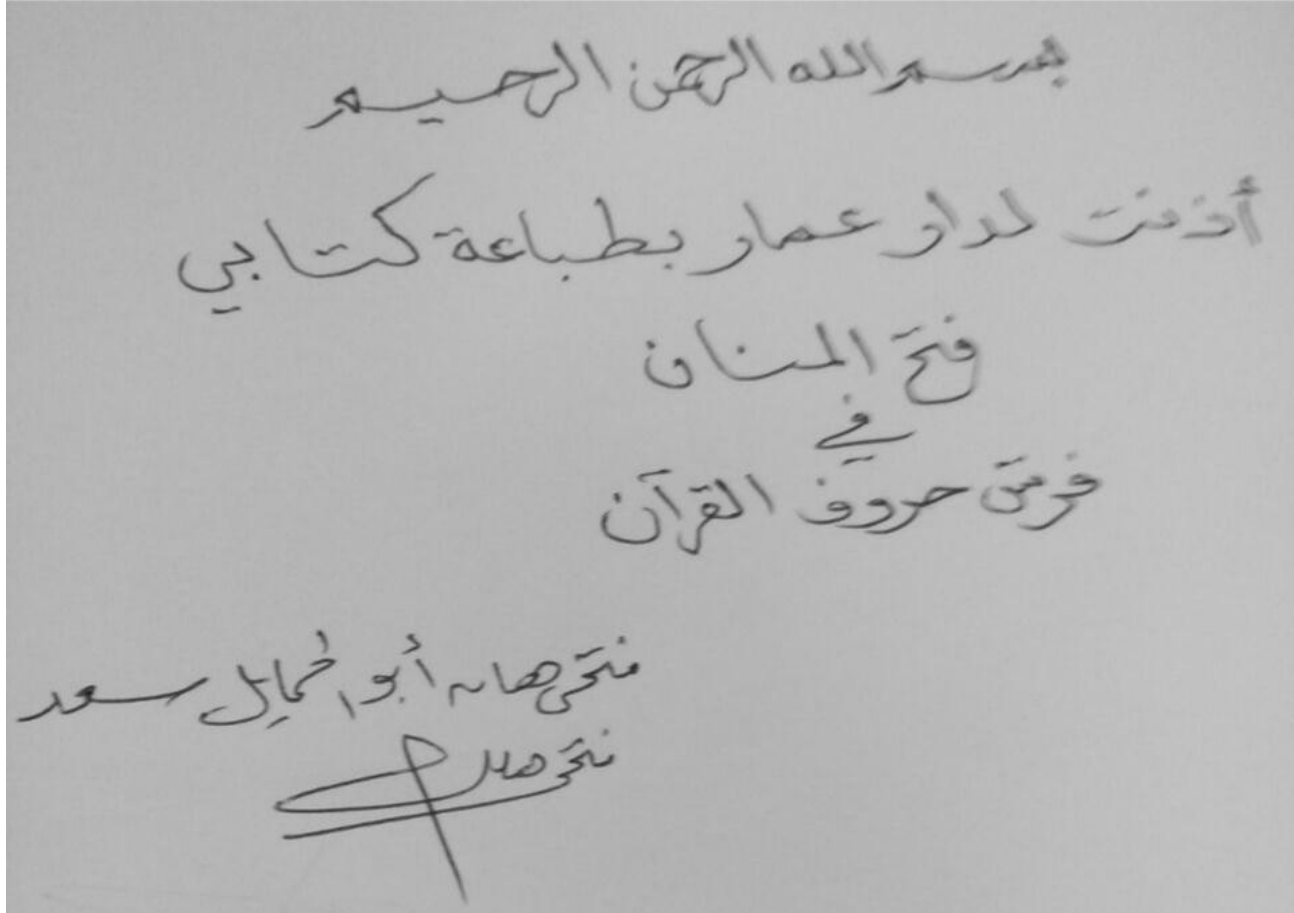 بسم الله الرحمن الرحيم
أذنت لدار عمار بطباعة كتابي
فتح المنان
في
فرش حروف القرآن
فتحي أبو سعد
فتحي